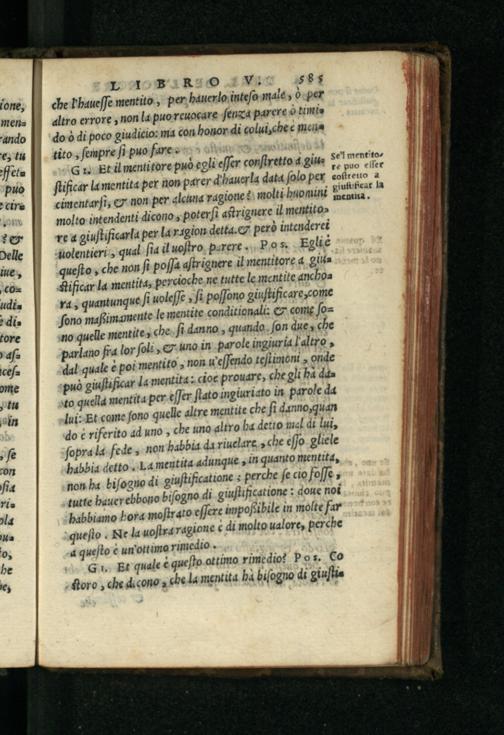 LIBRO V. 585
che l'hauesse mentito, per hauerlo inteso male, ò per
altro errore, non la puo reuocare senza parere ò timi-
do ò di poco giudicio: ma con honor di colui, che è men-
tito, sempre si puo fare.
GI. Et il mentitore può egli esser constretto a giu-
stificar la mentita per non parer d'hauerla data solo per
cimentarsi, & non per alcuna ragione? molti huomini
molto intendenti dicono, potersi astrignere il mentito-
re a giustificarla per la ragion detta. & però intenderei
uolentieri, qual sia il uostro parere. POS. Egli è
questo, che non si possa astrignere il mentitore a giu-
stificar la mentita, percioche ne tutte le mentite ancho-
ra, quantunque si uolesse, si possono giustificare, come
sono maßimamente le mentite conditionali: & come so-
no quelle mentite, che si danno, quando son due, che
parlano fra lor soli, & uno in parole ingiuria l'altro,
dal quale è poi mentito, non u'essendo testimoni, onde
può giustificar la mentita: cioè prouare, che gli hà da-
to quella mentita per esser stato ingiuriato in parole da
lui: Et come sono quelle altre mentite che si danno, quan
do è riferito ad uno, che uno altro ha detto mal di lui,
sopra la fede, non habbia da riuelare, che esso gliele
habbia detto. La mentita adunque, in quanto mentita,
non ha bisogno di giustificatione: perche se ciò fosse,
tutte hauerebbono bisogno di giustificatione: doue noi
habbiamo hora mostrato essere impoßibile in molte far
questo. Ne la uostra ragione è di molto ualore, perche
a questo è un'ottimo rimedio.
GI. Et quale è questo ottimo rimedio? POS. Co
storo, che dicono, che la mentita hà bisogno di giusti-
Se'l mentito-
re puo esser
costretto a
giustificar la
mentita.
ione,
men-
rando
re, tu
effet-
può
e cir-
? &
Delle
iue,
co-
udi-
è di-
tore
o as-
ome
, tu
in
, se
con
ri-
ola
he